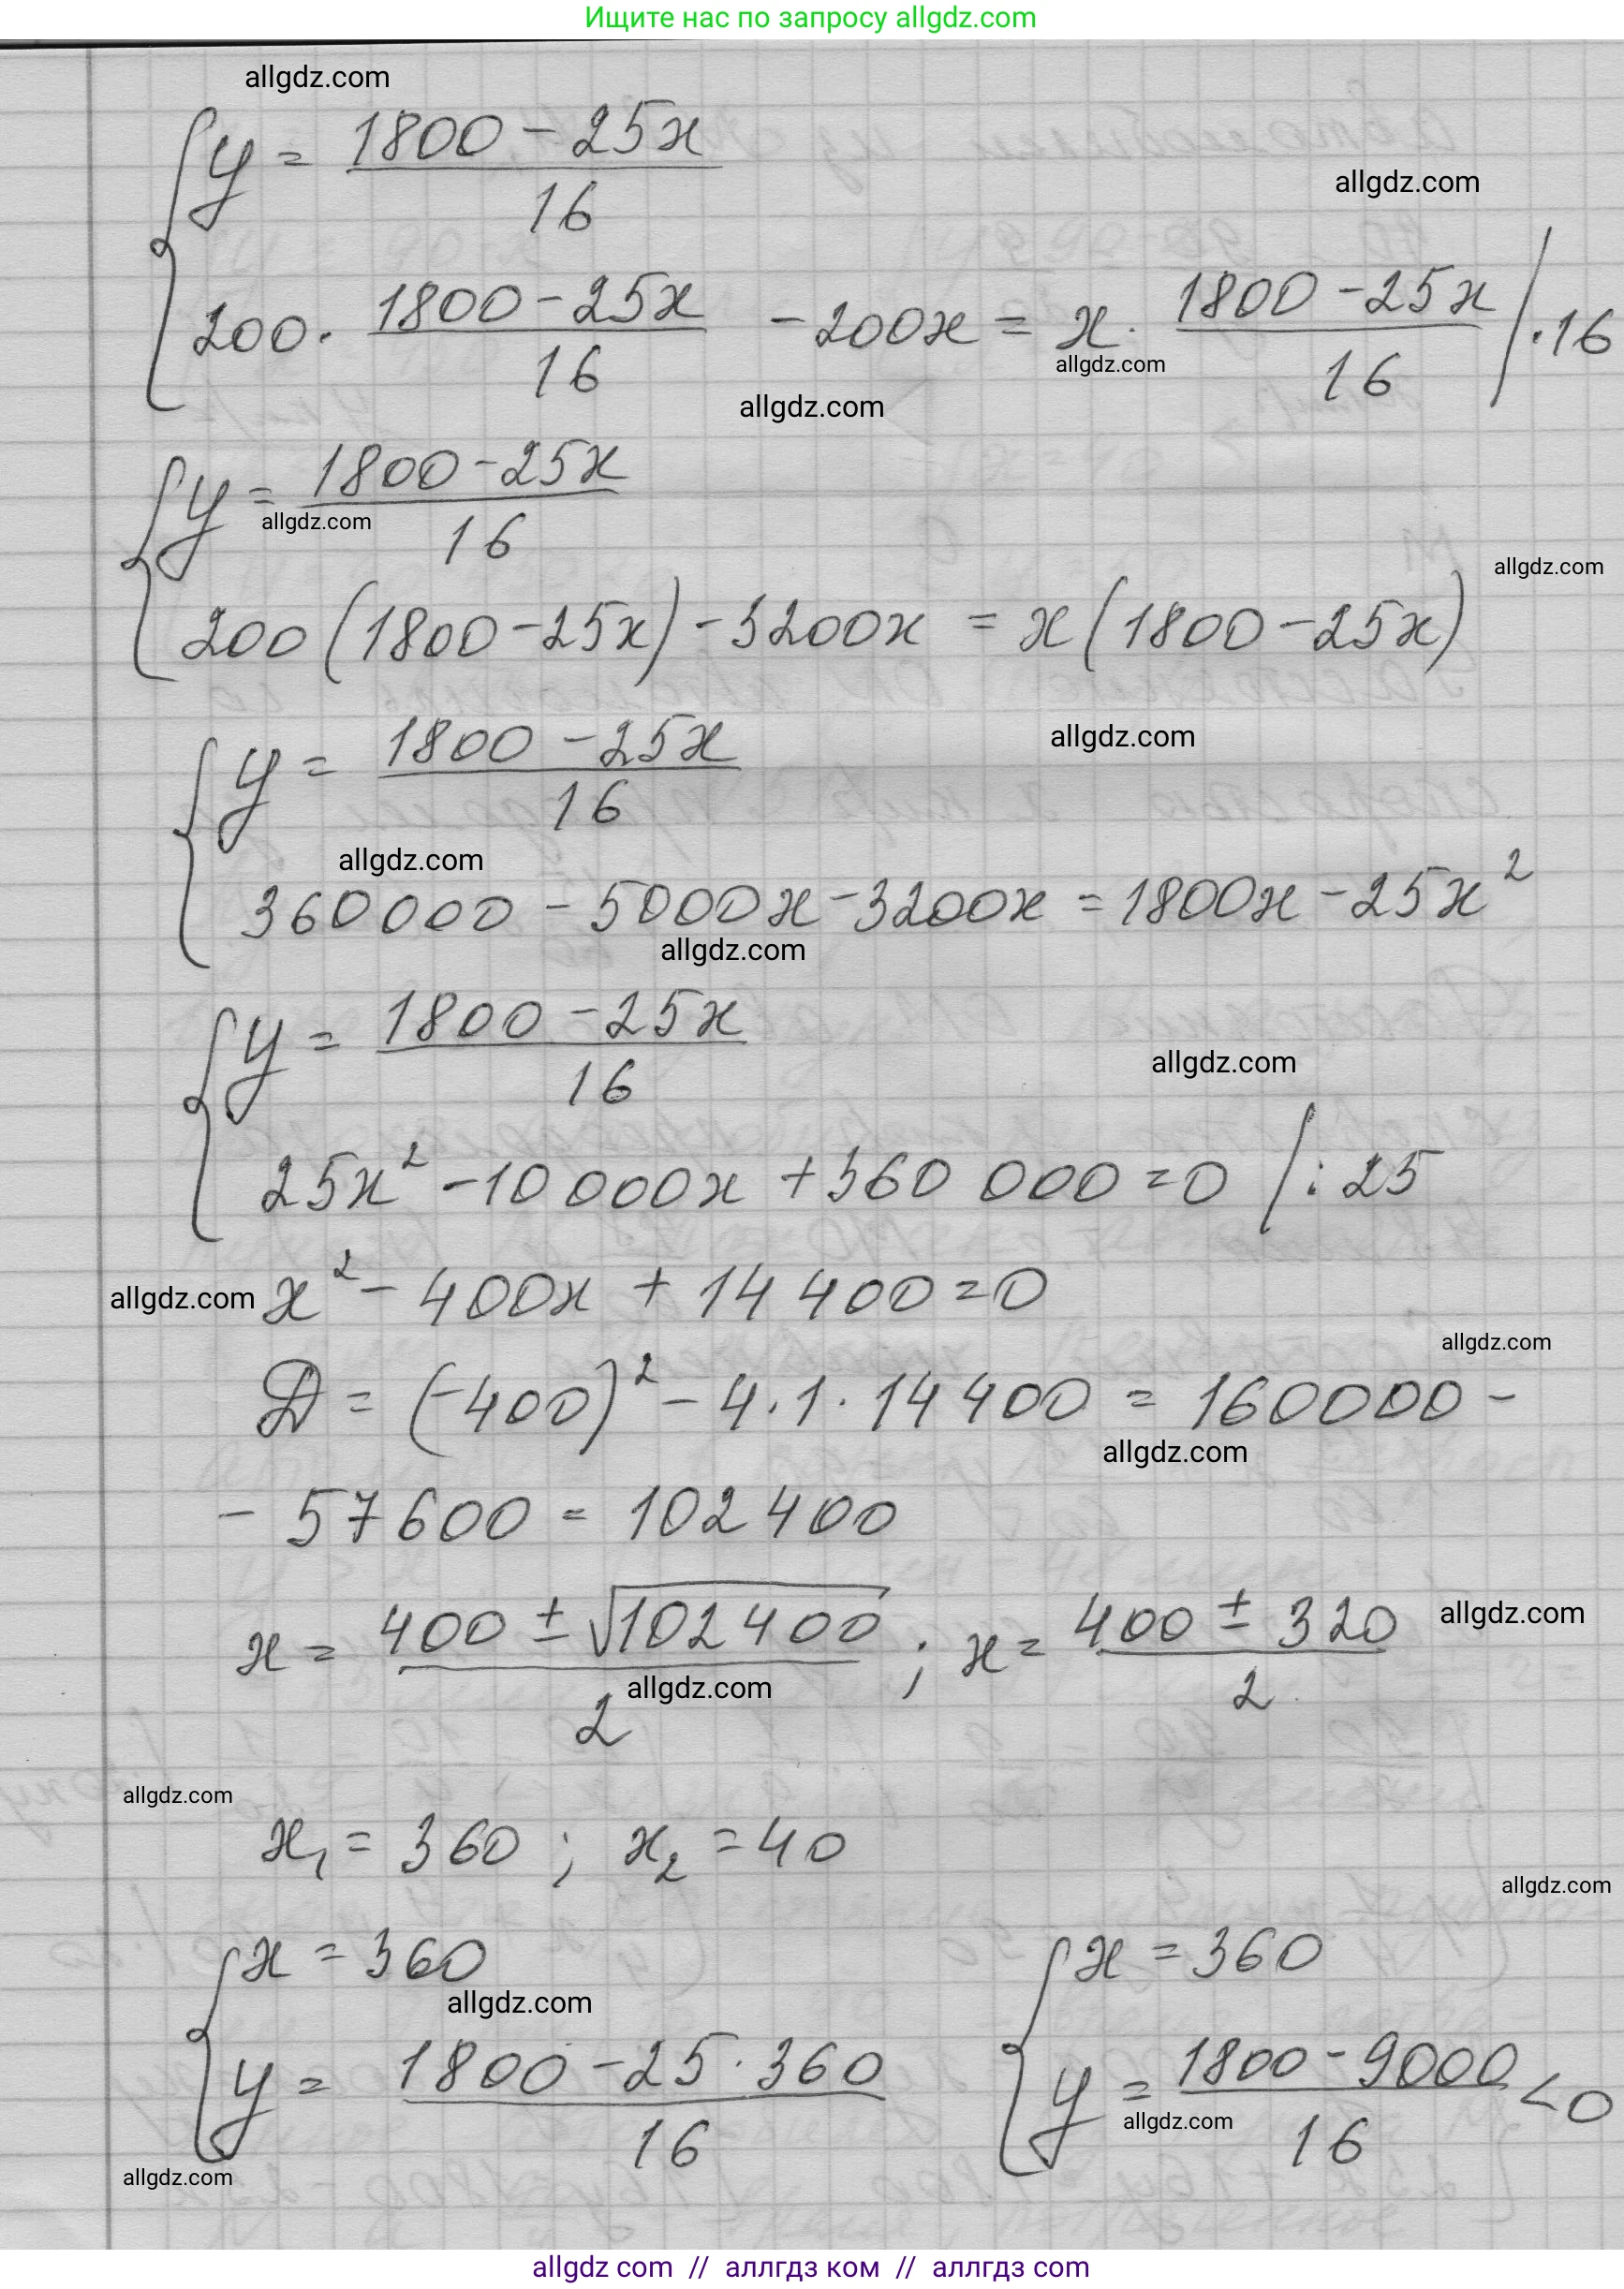 Ищите нас по запросу allgdz.com
allgdz.com
y = \frac{1800 - 25x}{16}
allgdz.com
200 · \frac{1800 - 25x}{16} - 200x = x · \frac{1800 - 25x}{16} | · 16
allgdz.com
allgdz.com
y = \frac{1800 - 25x}{16}
allgdz.com
allgdz.com
200(1800 - 25x) - 3200x = x(1800 - 25x)
allgdz.com
y = \frac{1800 - 25x}{16}
allgdz.com
360000 - 5000x - 3200x = 1800x - 25x²
allgdz.com
y = \frac{1800 - 25x}{16}
allgdz.com
25x² - 10 000x + 360 000 = 0 | : 25
allgdz.com
x² - 400x + 14 400 = 0
allgdz.com
D = (-400)² - 4 · 1 · 14 400 = 160000 -
allgdz.com
- 57600 = 102 400
x = \frac{400 ± √102 400}{2} ; x = \frac{400 ± 320}{2}
allgdz.com
allgdz.com
allgdz.com
x₁ = 360 ; x₂ = 40
allgdz.com
x = 360 x = 360
allgdz.com
y = \frac{1800 - 25 · 360}{16} y = \frac{1800 - 9000}{16} < 0
allgdz.com
allgdz.com
allgdz com // аллгдз ком // аллгдз com